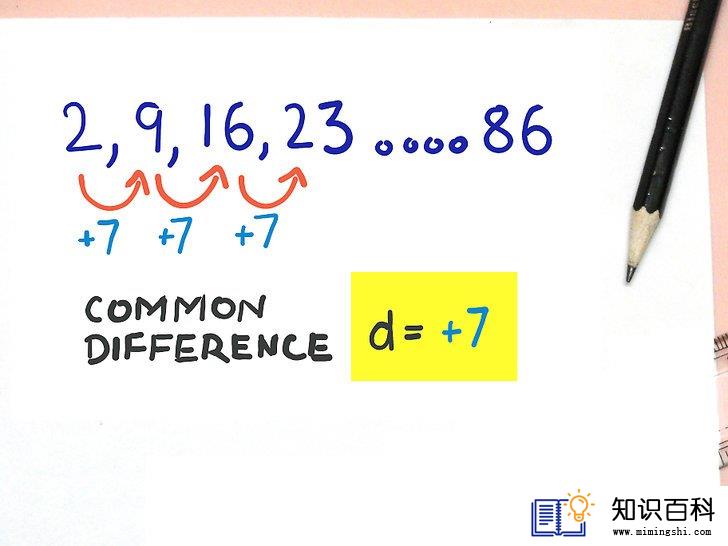 2, 9, 16, 23 .... 86
+7 +7 +7
COMMON
DIFFERENCE
d= +7
知识百科
www.mimingshi.com